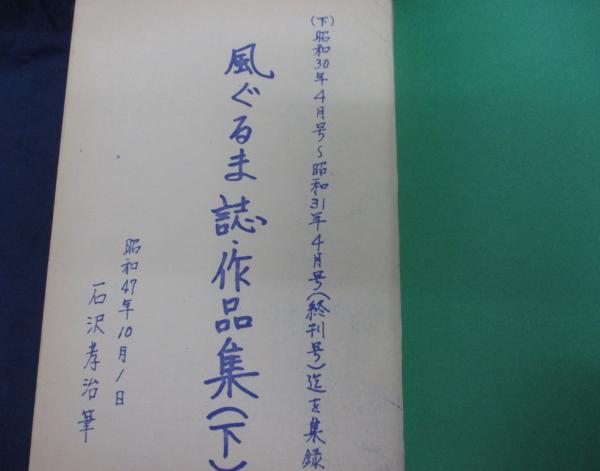 (下)昭和30年4月号～昭和31年4月号(終刊号)迄を集録
風ぐるま誌・作品集(下)
昭和47年10月1日
石沢孝治筆